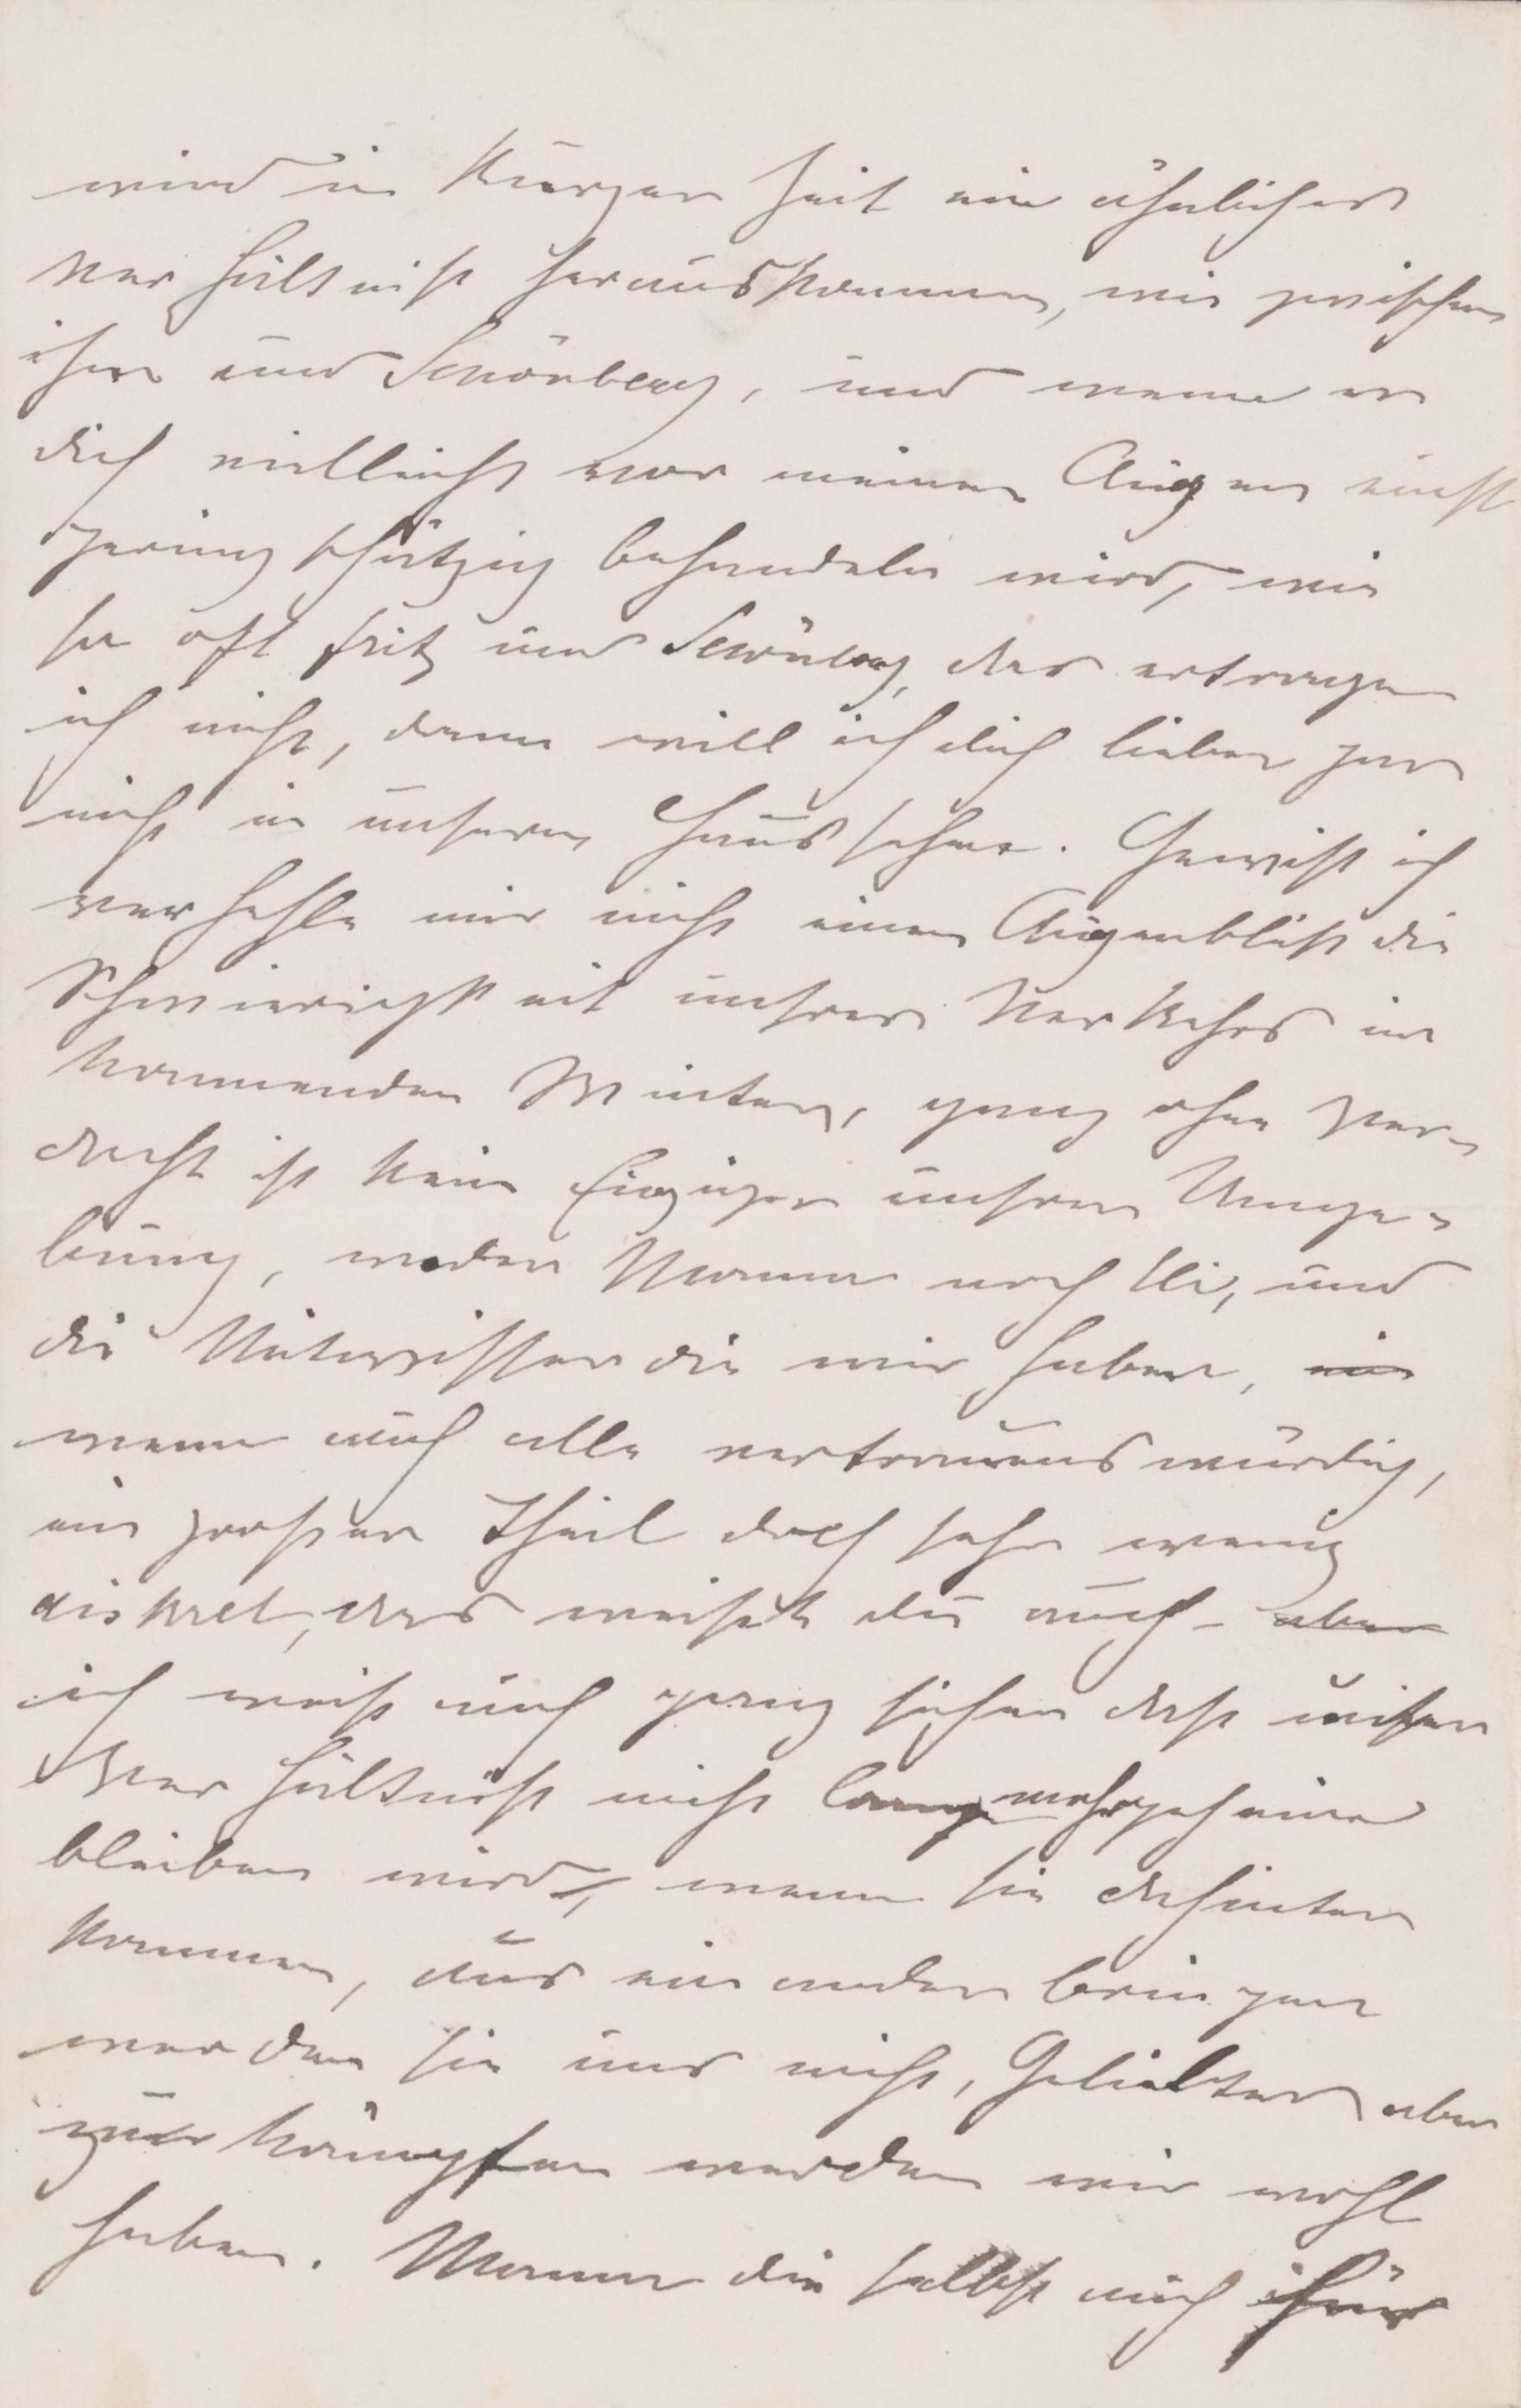 wird in kurzer Zeit ein ähnliches
Verhältniß herauskommen, wie zwischen
ihm und Schönberg, und wenn er
dich vielleicht vor meinen Augen einst
geringschätzig behandeln wird, wie
so oft Fritz und Schönberg, das ertrage
ich nicht, dann will ich dich lieber gar
nicht in unserm Haus sehen. Gewiß ich
verhehle mir nicht einen Augenblick die
Schwierigkeit unsres Verkehrs im
kommenden Winter, ganz ohne Ver-
dacht ist kein Einziger unsrer Umge-
bung, weder Mama noch Eli, und
die Mitwisser die wir haben,
wenn auch alle vertrauenswürdig,
ein großer Theil doch sehr wenig
diskret, das weißt du auch - aber
ich weiß auch ganz sicher daß unser
Verhältniß nicht lange mehr geheim
bleiben wird, wenn sie dahinter
kommen, auseinander bringen
werden sie uns nicht, Geliebter aber
zu kämpfen werden wir wohl
haben. Mama die selbst auch